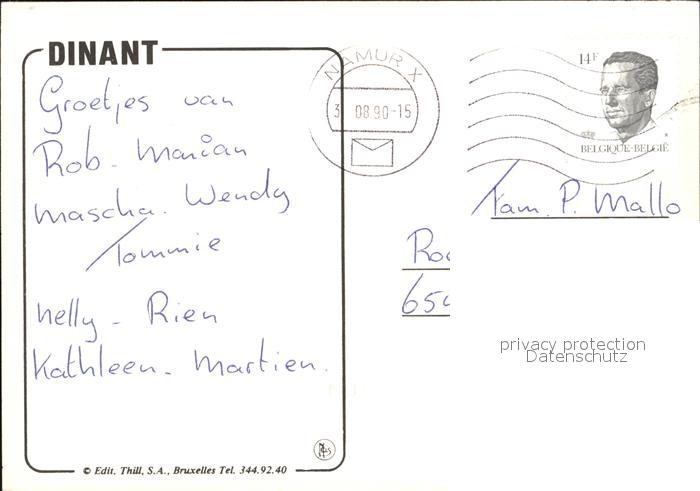 DINANT
Groetjes van
Rob - Marian
Mascha. Wendy
Tommie
Nelly - Rien
Kathleen - Martien.
© Edit. Thill, S.A., Bruxelles Tel. 344.92.40
NAMUR X
3 08 90-15
14F
BELGIQUE·BELGIË
Fam. P. Mallo
privacy protection
Datenschutz